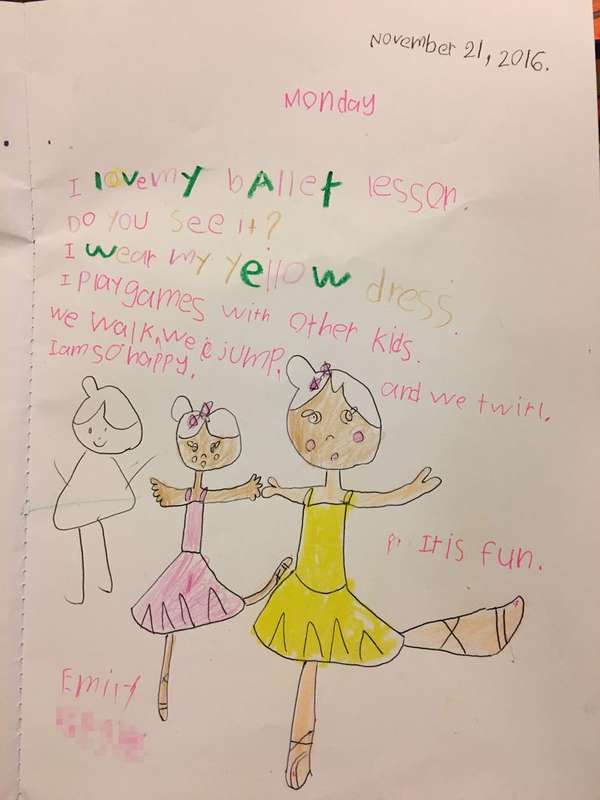 November 21, 2016.
Monday
I love my bAllet lesson.
Do you see it?
I wear my yellow dress.
I play games with other kids.
we walk, we jump, and we twirl.
I am so happy.
It is fun.
Emily